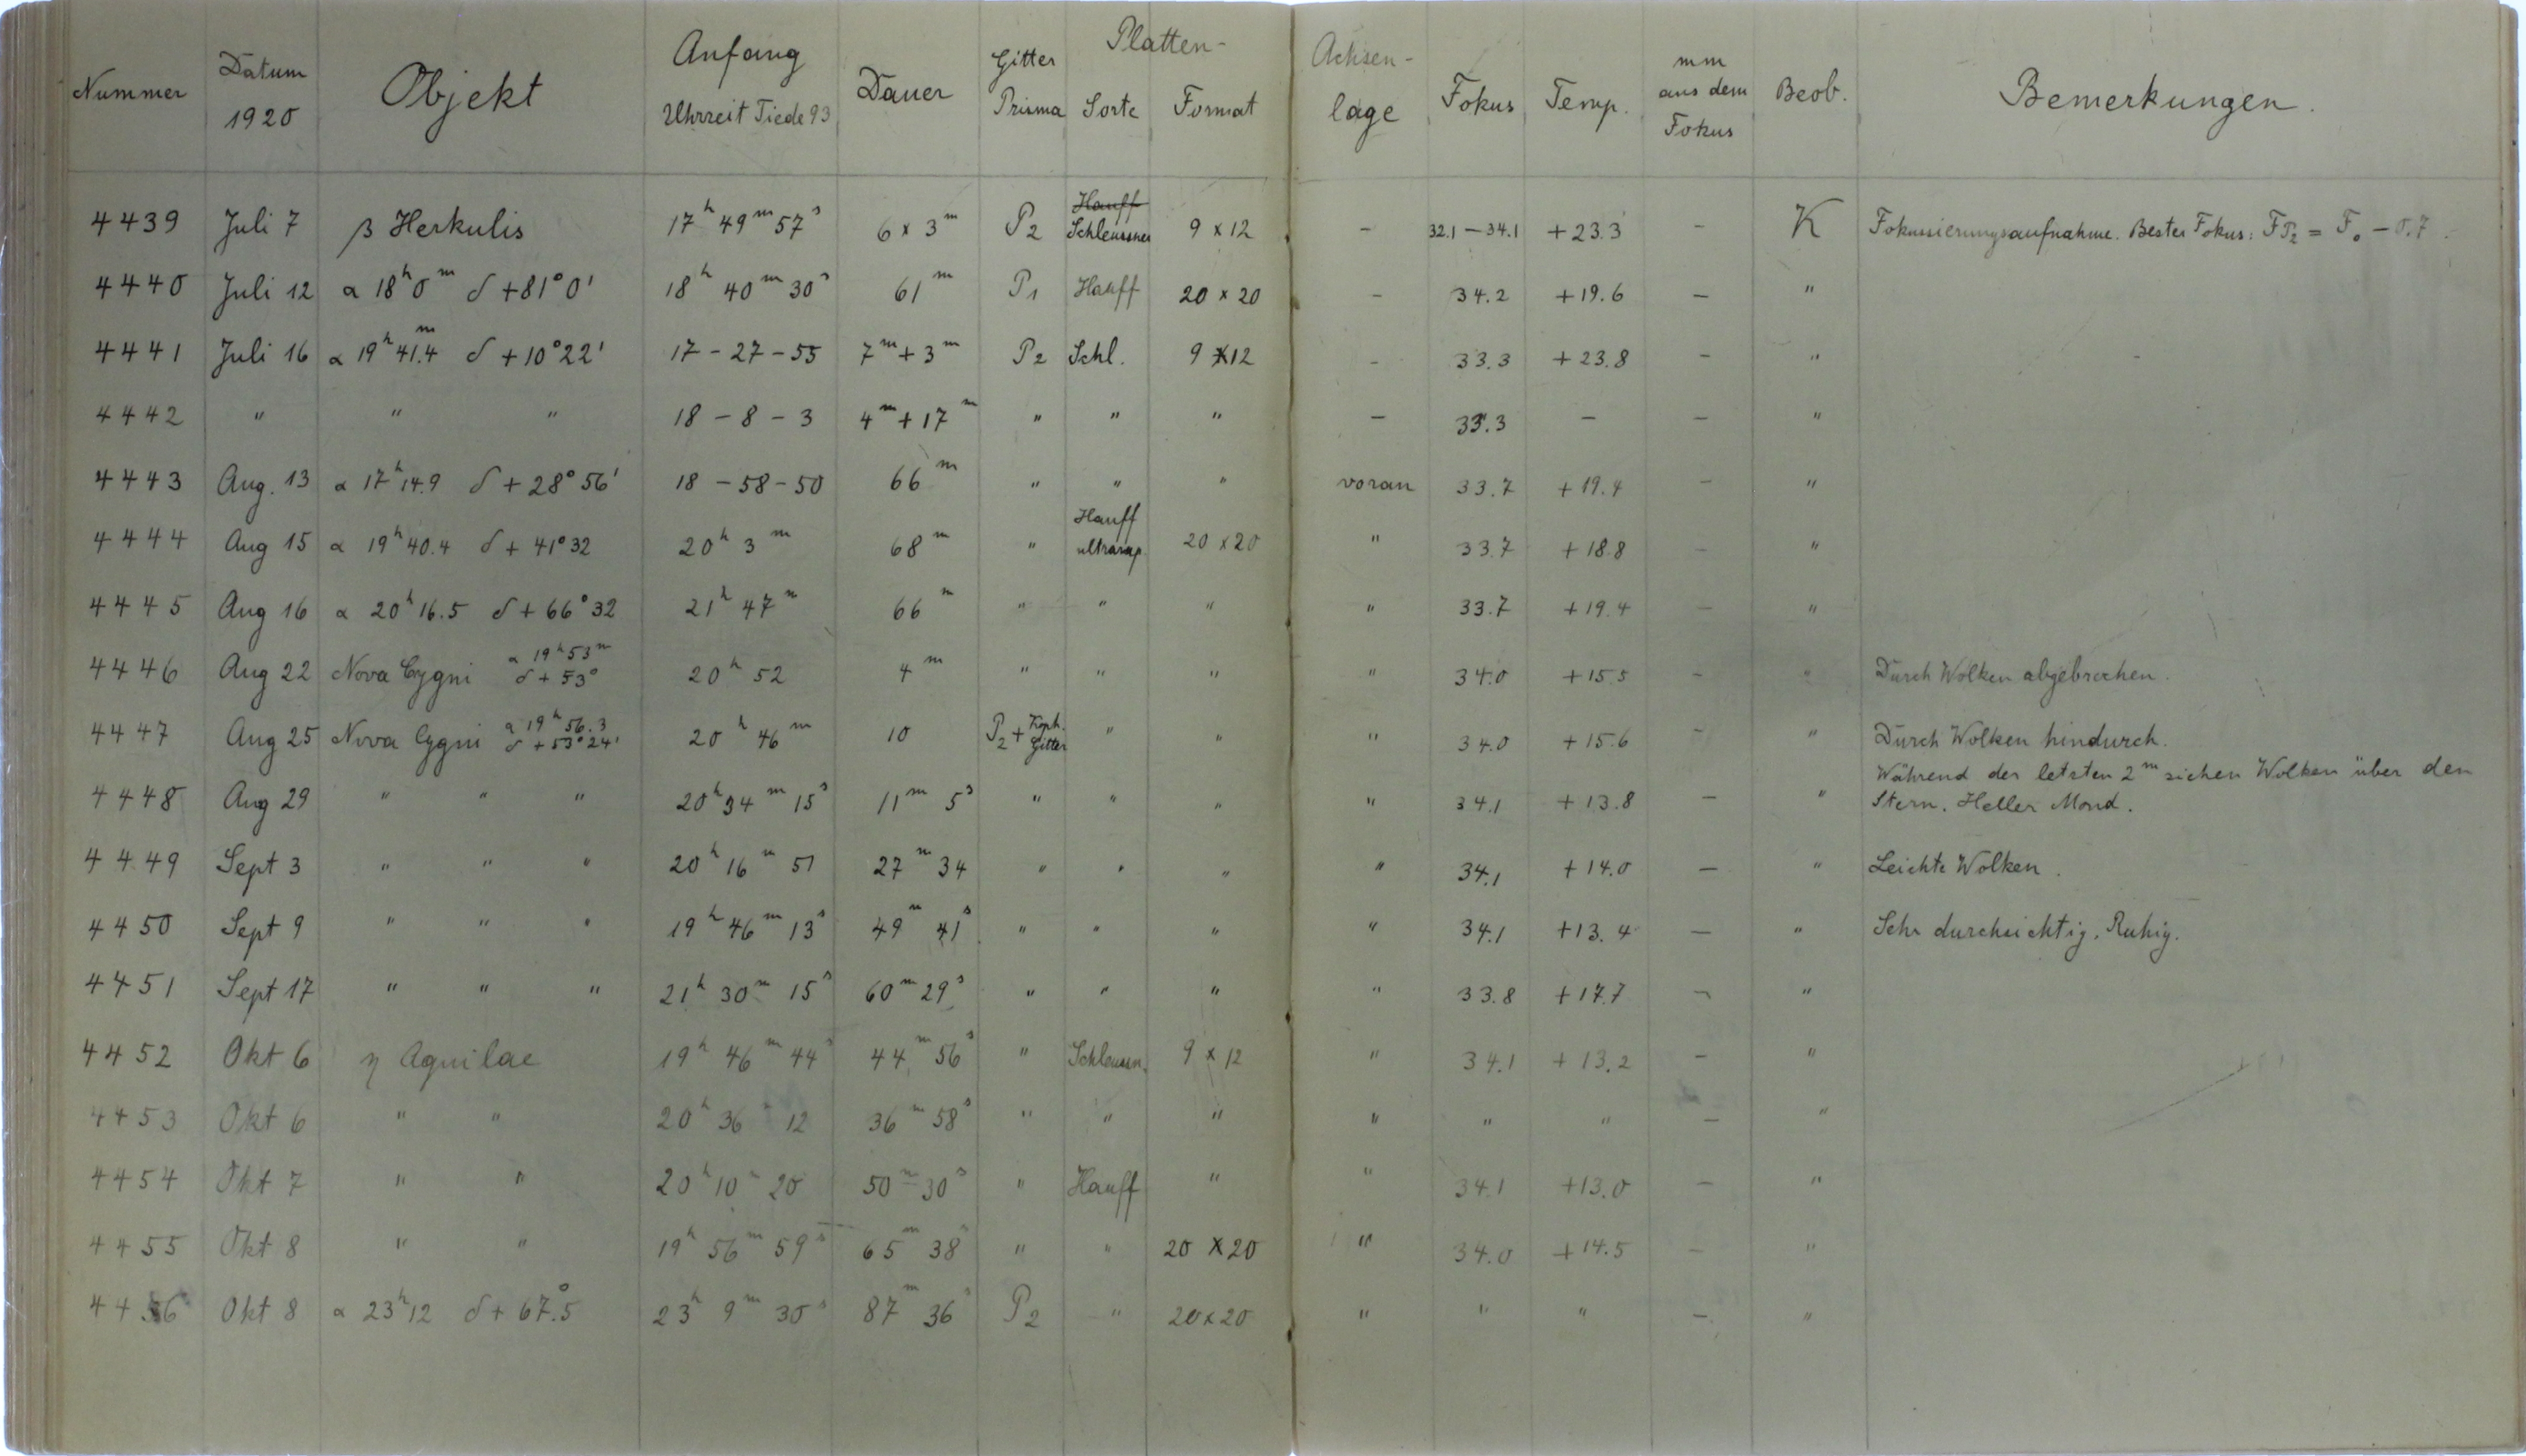 Nummer Datum 1920 Objekt Anfang Uhrzeit Tiede 93 Dauer Gitter Prisma Platten- Sorte Format Achsen-lage Fokus Temp. mm aus dem Fokus Beob. Bemerkungen.
4439 Juli 7 β Herkulis 17h 49m 57s 6 x 3m P2 Hauff Schleussner 9 x 12 - 32.1 - 34.1 + 23.3 - K Fokussierungsaufnahme. Bester Fokus: FP2 = F0 - 0.7.
4440 Juli 12 α 18h 0m δ +81° 0' 18h 40m 30s 61m P1 Hauff 20 x 20 - 34.2 + 19.6 - "
4441 Juli 16 α 19h 41.4m δ + 10° 22' 17 - 27 - 55 7m + 3m P2 Schl. 9 x 12 - 33.3 + 23.8 - "
4442 " " " 18 - 8 - 3 4m + 17m " " " - 33.3 - - "
4443 Aug. 13 α 17h 14.9 δ + 28° 56' 18 - 58 - 50 66m " " " voran 33.7 + 19.4 - "
4444 Aug 15 α 19h 40.4 δ + 41° 32 20h 3m 68m " Hauff ultrarap. 20 x 20 " 33.7 + 18.8 - "
4445 Aug 16 α 20h 16.5 δ + 66° 32 21h 47m 66m " " " " 33.7 + 19.4 - "
4446 Aug 22 Nova Cygni α 19h 53m δ + 53° 20h 52 4m " " " " 34.0 + 15.5 - " Durch Wolken abgebrochen.
4447 Aug 25 Nova Cygni α 19h 56.3 δ + 53° 24' 20h 46m 10 P2 + Koph. Gitter " " " 34.0 + 15.6 - " Durch Wolken hindurch.
4448 Aug 29 " " " 20h 34m 15s 11m 5s " " " " 34.1 + 13.8 - " Während der letzten 2m ziehen Wolken über den
Stern. Heller Mond.
4449 Sept 3 " " " 20h 16m 51 27m 34 " " " " 34.1 + 14.0 - " Leichte Wolken.
4450 Sept 9 " " " 19h 46m 13s 49m 41s " " " " 34.1 + 13.4 - " Sehr durchsichtig. Ruhig.
4451 Sept 17 " " " 21h 30m 15s 60m 29s " " " " 33.8 + 17.7 - "
4452 Okt 6 η Aquilae 19h 46m 44s 44m 56s " Schleussn. 9 x 12 " 34.1 + 13.2 - "
4453 Okt 6 " " 20h 36m 12 36m 58s " " " " " " - "
4454 Okt 7 " " 20h 10m 20 50m 30s " Hauff " " 34.1 + 13.0 - "
4455 Okt 8 " " 19h 56m 59s 65m 38s " " 20 x 20 " 34.0 + 14.5 - "
4456 Okt 8 α 23h 12 δ + 67.5° 23h 9m 30s 87m 36s P2 " 20 x 20 " " " - "